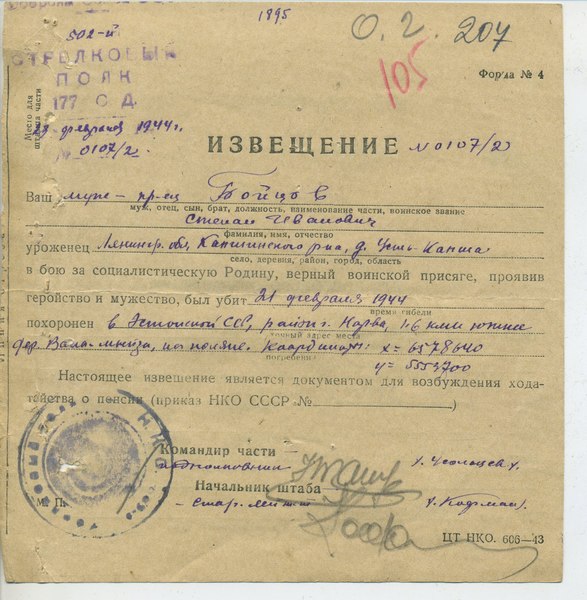 1895
О. 2. 207
105
502-й
СТРЕЛКОВЫЙ
ПОЛК
177 С Д.
Форма № 4
Место для
штампа части
февраля 1944 г.
№ 0107/2
ИЗВЕЩЕНИЕ N 0107/2
Ваш муж – кр-ец Бойцов
муж, отец, сын, брат, должность, наименование части, воинское звание
Степан Иванович
фамилия, имя, отчество
уроженец Ленингр. обл, Капшинского р-на, д. Усть-Капша
село, деревня, район, город, область
в бою за социалистическую Родину, верный воинской присяге, проявив
геройство и мужество, был убит 21 февраля 1944
время гибели
похоронен в Эстонской ССР, район г. Нарва, 1.6 км южнее
точный адрес места
дер. Вала-мыйза, на поляне. Координаты: x=6578640
погребения
y=5553700
Настоящее извещение является документом для возбуждения хода-
тайства о пенсии (приказ НКО СССР №)
Командир части –
подполковник
Начальник штаба –
– Стар. лейт
М. П.
ЦТ НКО. 606—43